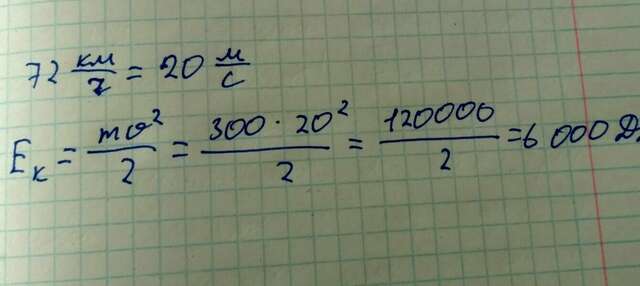 72 км/ч = 20 м/с
Eк = mv²/2 = 300 · 20²/2 = 120000/2 = 6 000 Д